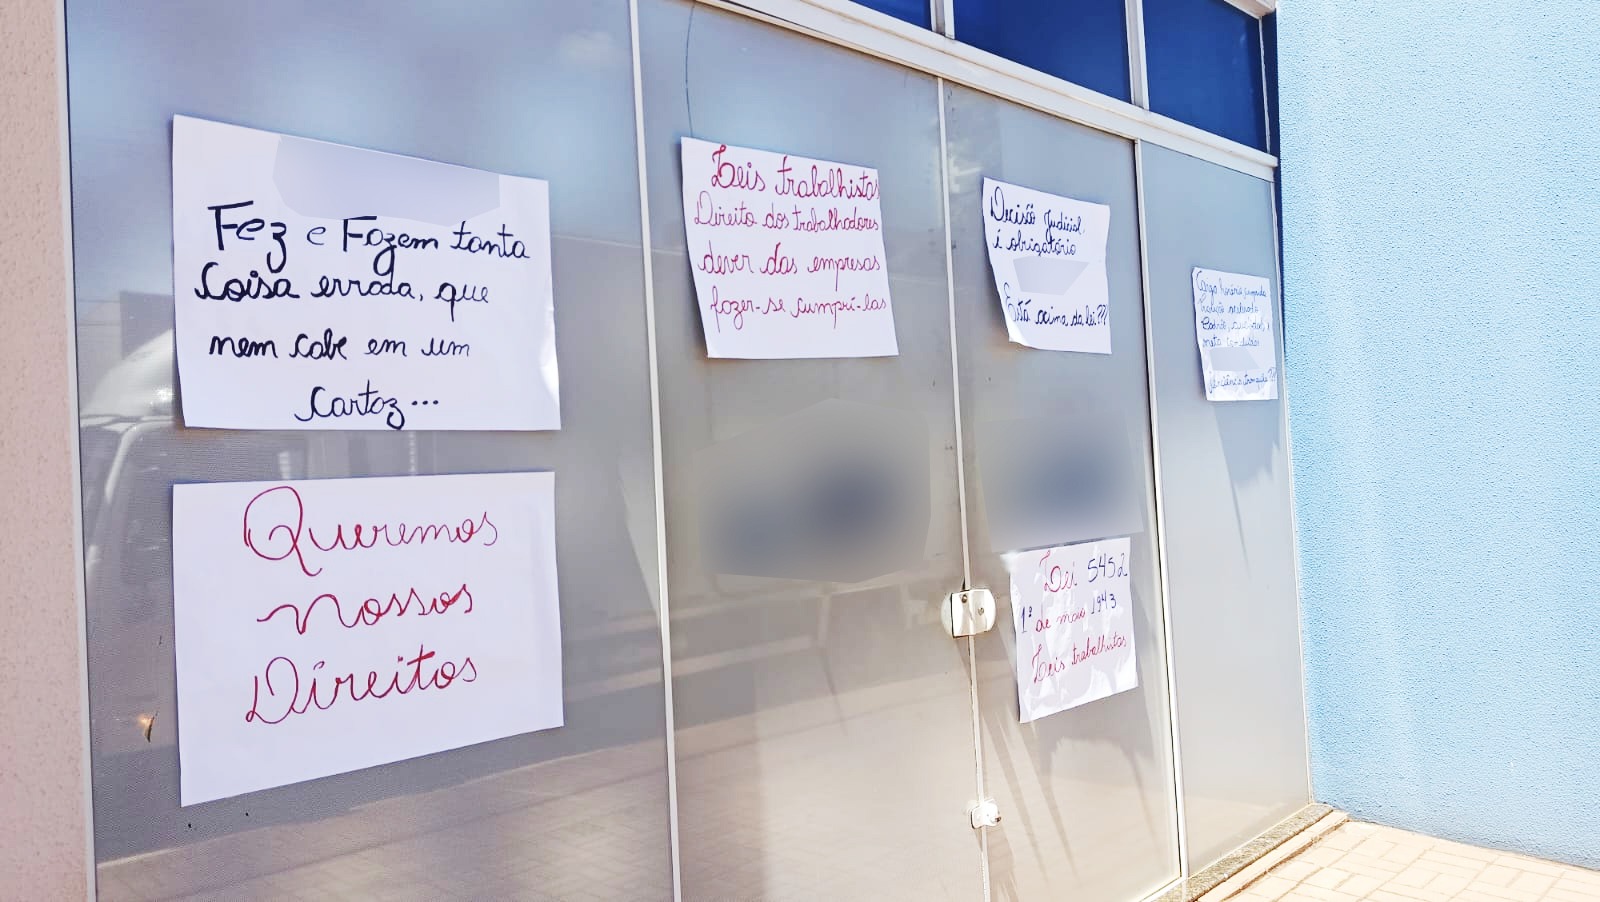 Fez e Fazem tanta
Coisa errada, que
nem cabe em um
Cartaz...
Queremos
Nossos
Direitos
Leis trabalhistas
Direito dos trabalhadores
dever das empresas
fazer-se cumpri-las
Decisão Judicial,
é obrigatório
Está acima da lei???
Lei 5452
1º de maio 1943
Leis trabalhistas
Carga horária